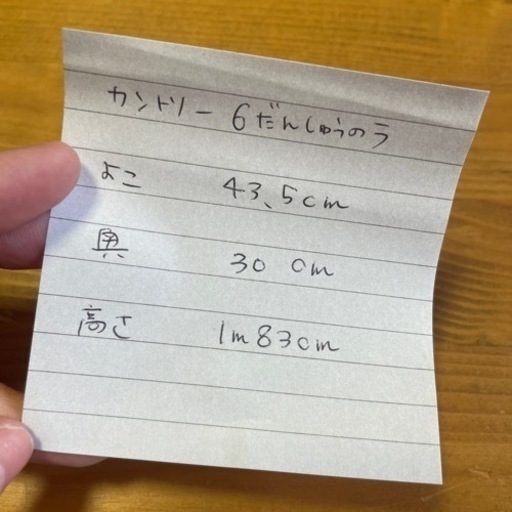 カントリー 6だんしゅうのラ
よこ 43.5cm
奥 30cm
高さ 1m83cm